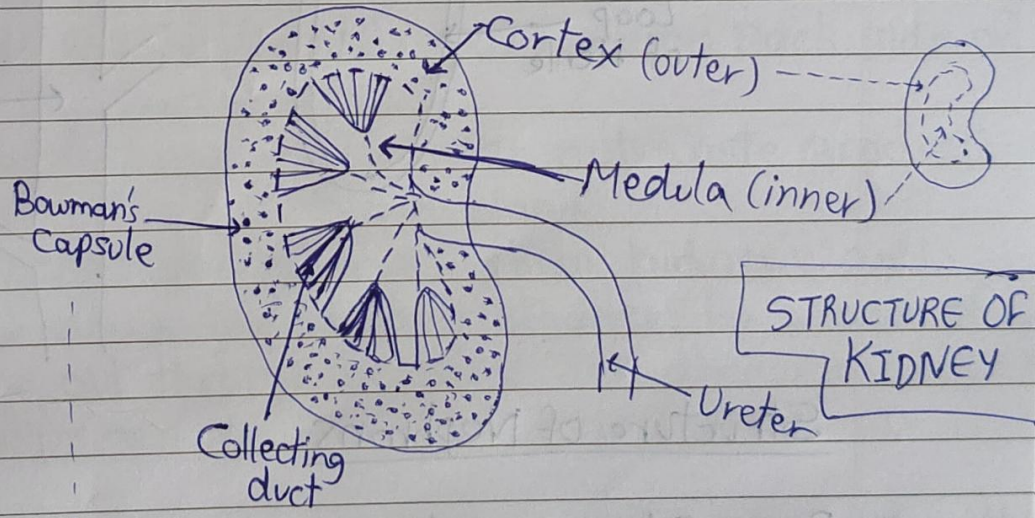 Cortex (outer)
Medula (inner)
Bowman's
capsule
STRUCTURE OF
KIDNEY
Ureter
Collecting
duct